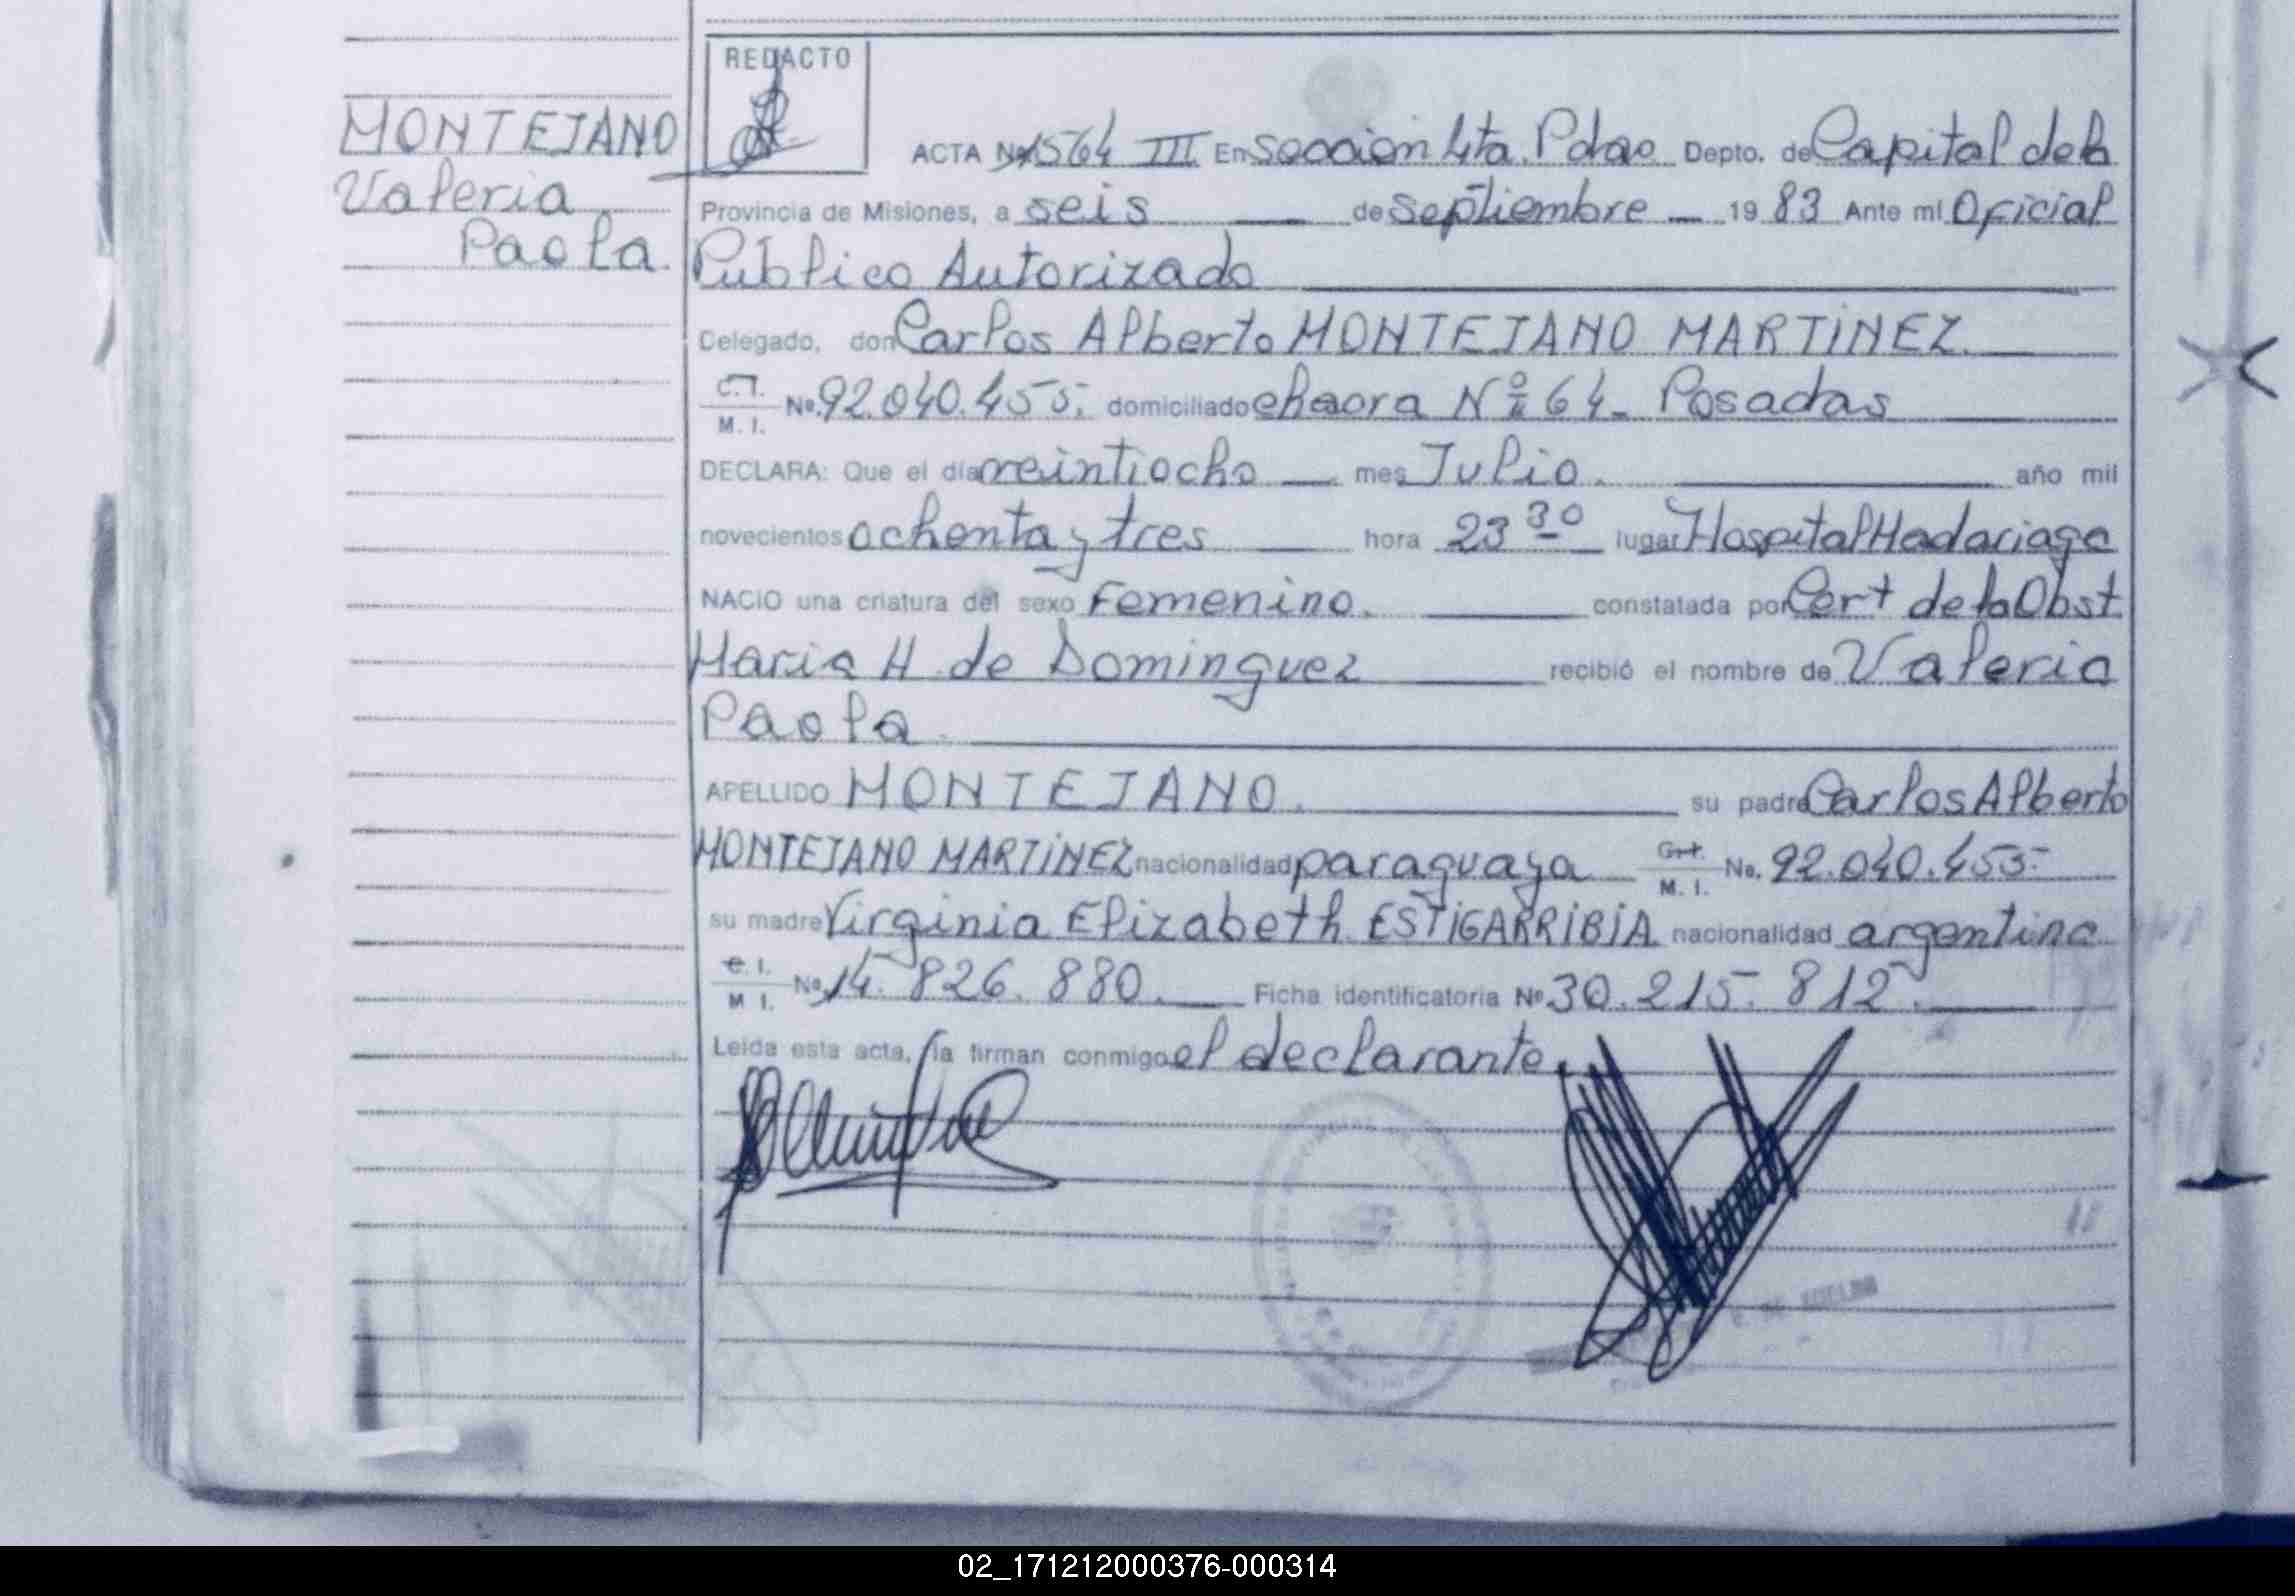 REDACTO
MONTEJANO
Valeria
Paola
ACTA Nº 1564 III En Sección 4ta. Pdas Depto. de Capital de la
Provincia de Misiones, a seis de Septiembre 19 83 Ante mi Oficial
Público Autorizado
Delegado, don Carlos Alberto MONTEJANO MARTINEZ
C.I. M. I. No. 92.040.455. domiciliado chacra Nº 64 - Posadas
DECLARA: Que el día veintiocho mes Julio. año mil
novecientos ochenta y tres hora 23 30 lugar Hospital Madariaga
NACIO una criatura del sexo Femenino. constatada por Cert de la Obst
Maria H. de Dominguez recibió el nombre de Valeria
Paola.
APELLIDO MONTEJANO. su padre Carlos Alberto
MONTEJANO MARTINEZ nacionalidad paraguaya M. I. No. 92.040.455-
su madre Virginia Elizabeth ESTIGARRIBIA nacionalidad argentina
C. I. M I. No. 14.826.880. Ficha identificatoria Nº 30.215.812.
Leida esta acta, la firman conmigo el declarante.
02_171212000376-000314